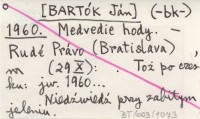 [BARTÓK Ján] (-bk-)
1960. Medvedie hody. -
Rudé Právo (Bratislava),
(29 X): . Toż po czes-
ku: jw. 1960...
Niedźwiedź przy zabitym
jeleniu.